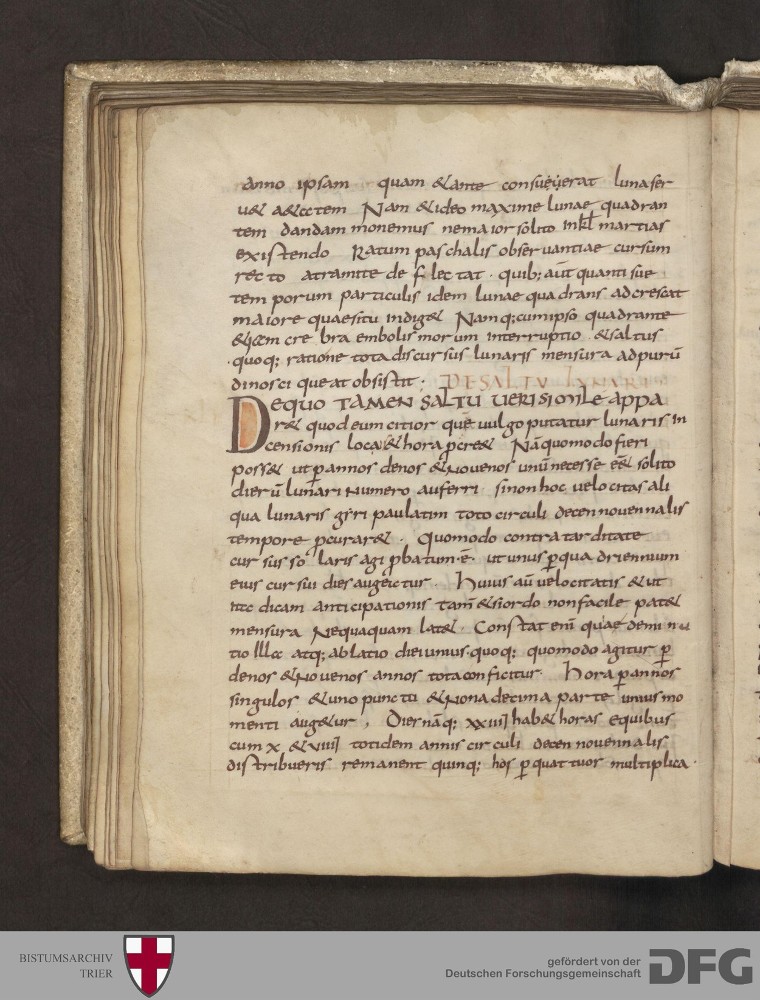 anno ipsam quam & ante consueuerat luna ser
u& a&atem Nam & ideo maxime lunae quadran
tem dandam monemus ne maior solito in kƚ martias
existendo Ratum paschalis obseruantiae cursum
recto a tramite deflectat · quib; aut̄ quanti sue
temporum particulis idem lunae quadrans adcrescat
maiore quaesitu indig& Namq; cum ipso quadrante
& idem crebra embolismorum interruptio & saltus
quoq; ratione tota discursus lunaris mensura ad purū
dinosci queat obsistit · DE SALTU LUNARI
DE QUO TAMEN SALTU UERISIMILE APPA
r& quod eum citior quē uulgo putatur lunaris in
censionis loca & hora pcre& Nā quomodo fieri
poss& ut p annos denos & nouenos unū necesse eē& solito
dierū lunari numero auferri si non hoc uelocitas ali
qua lunaris gyri paulatim toto circuli decennouennalis
tempore pcurar& · Quomodo contra tarditate
cursus solaris agi pbatum · ē · ut unus p quadriennium
eius cursui dies augeatur · Huius aū uelocitatis & ut
ita dicam anticipationis tam̄ & si ordo non facile pat&
mensura Nequaquam lat& · Constat enī quae deminu
tio illa atq; ablatio diei unius quoq; quomodo agitur p
denos & nouenos annos tota conficitur · Hora p annos
singulos & uno puncto & nona decima parte unius mo
menti aug&ur , Dies nāq; xxiiij hab& horas e quibus
cum x & uiiij totidem annis circuli decennouennalis
distribueris remanent quinq; hos p quattuor multiplica ·
BISTUMSARCHIV
TRIER
gefördert von der
Deutschen Forschungsgemeinschaft
DFG